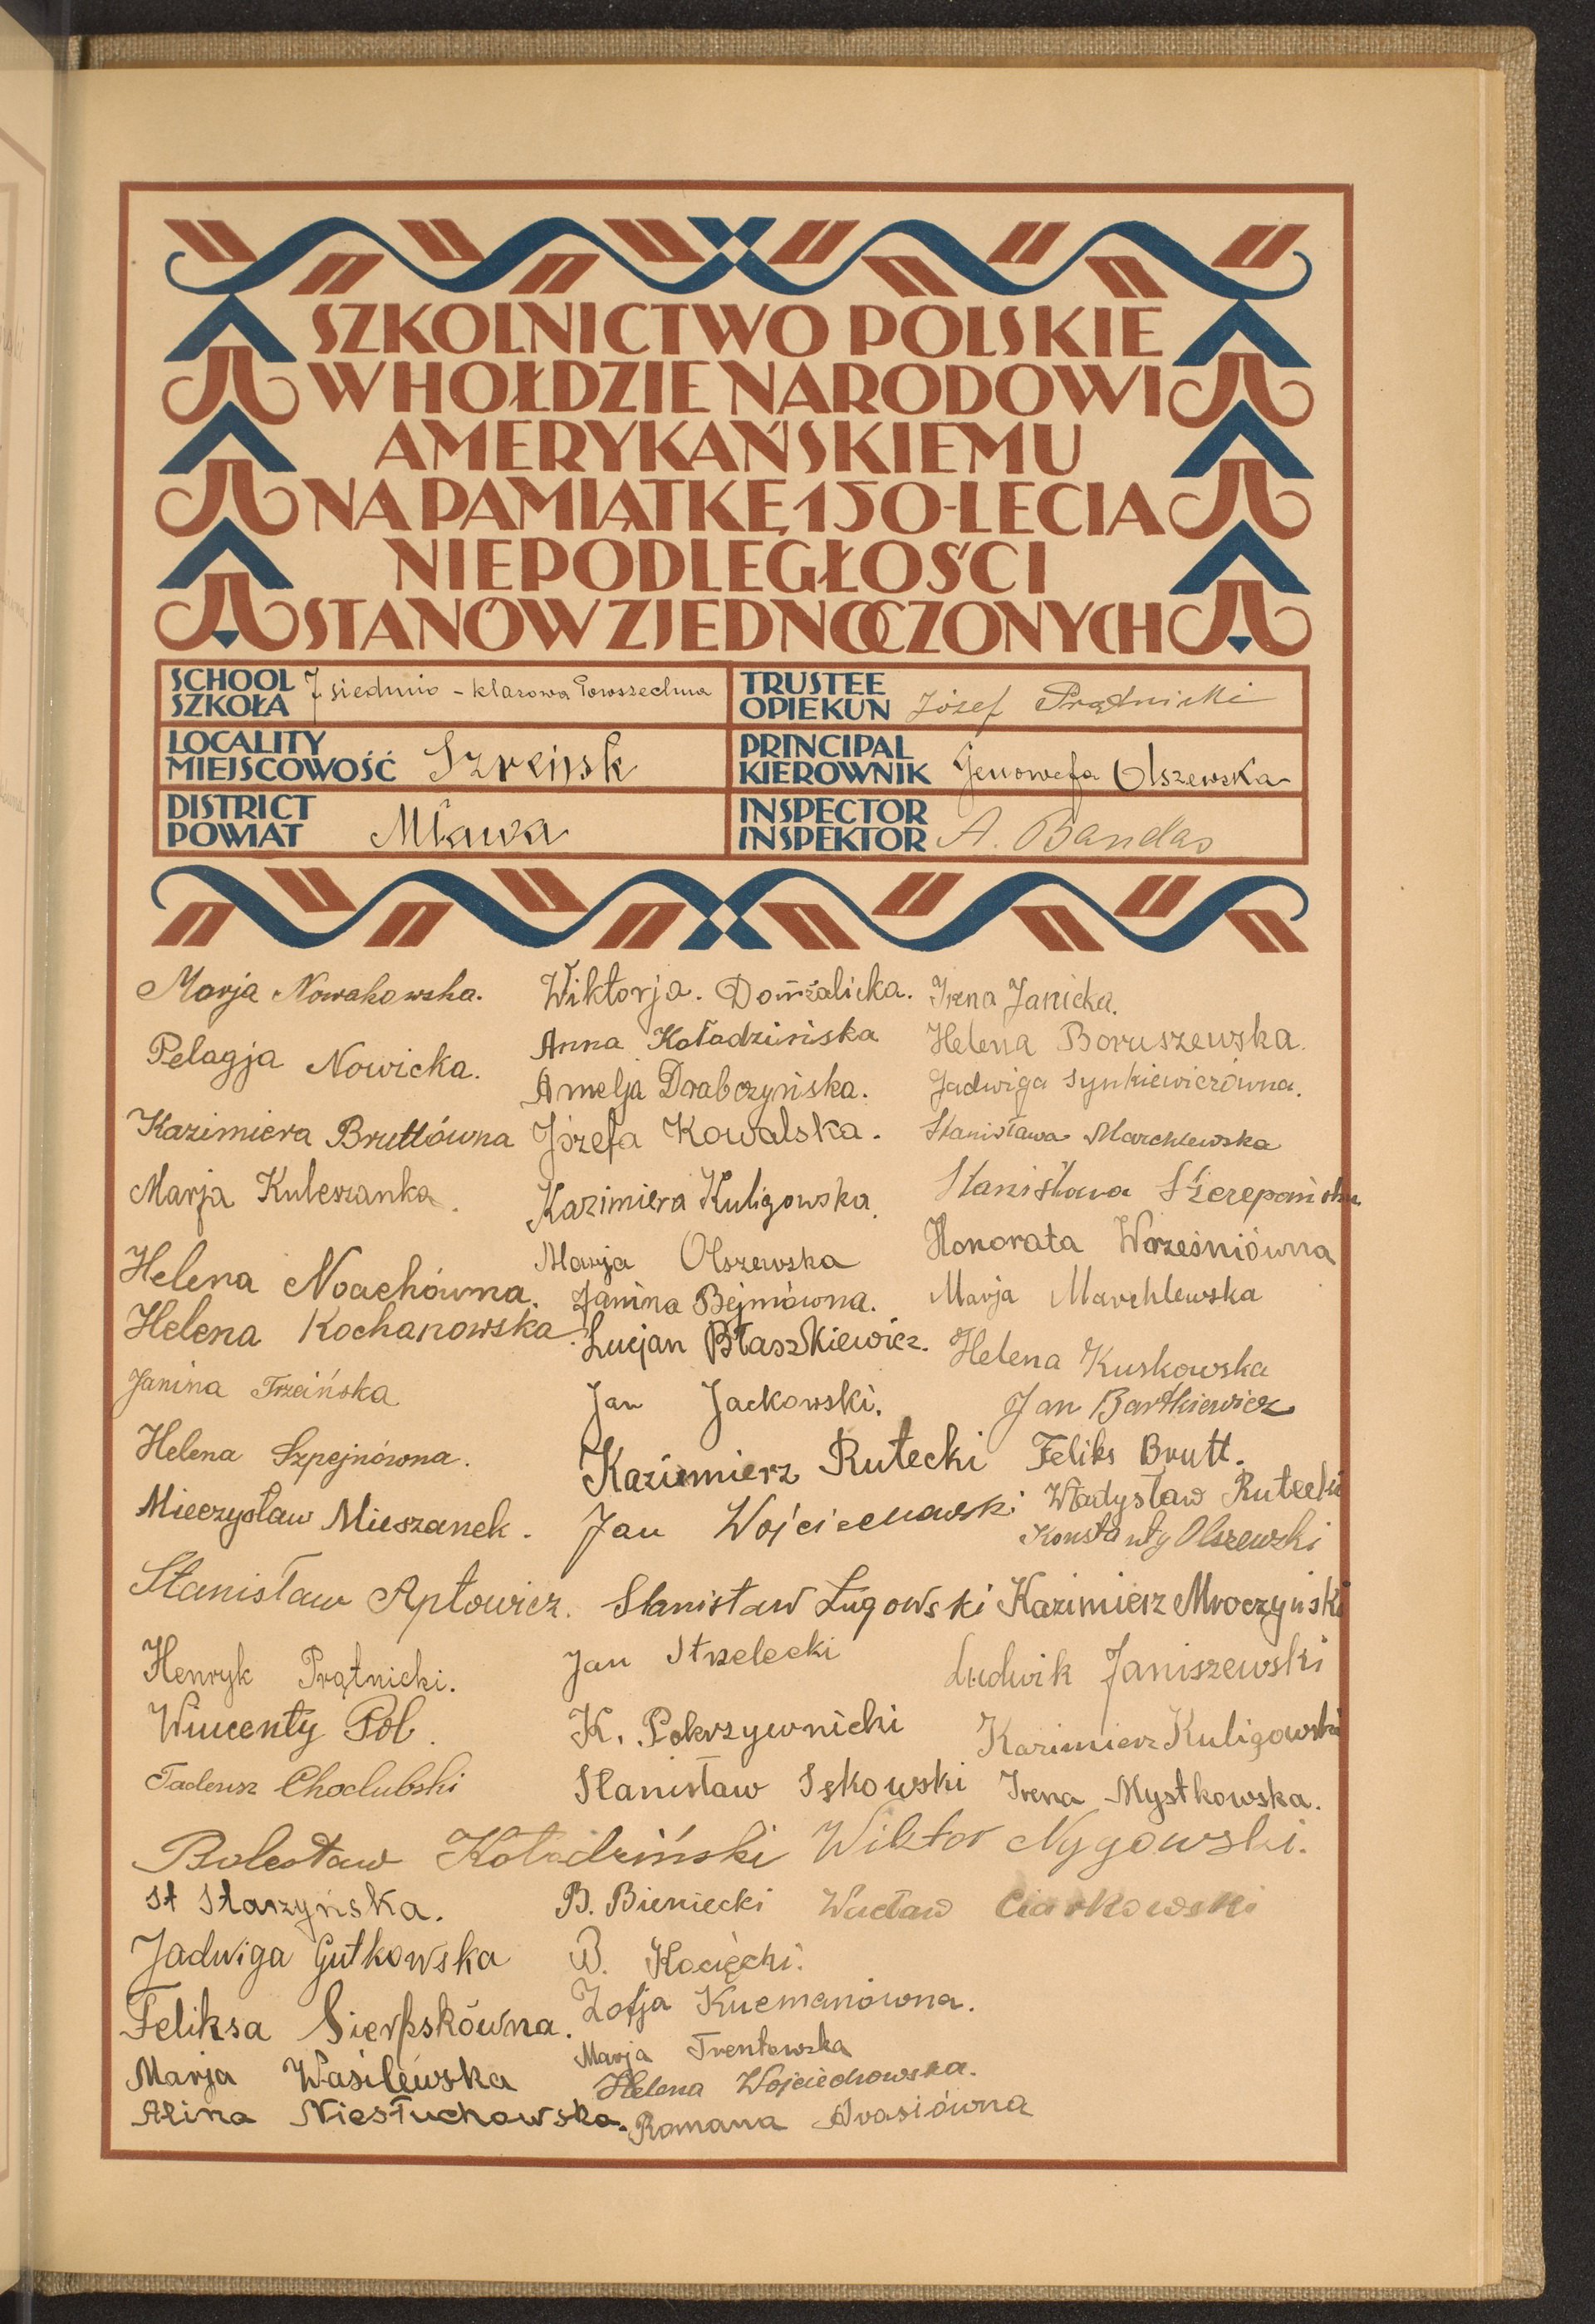 SZKOLNICTWO POLSKIE
W HOŁDZIE NARODOWI
AMERYKAŃSKIEMU
NA PAMIĄTKĘ 150-LECIA
NIEPODLEGŁOŚCI
STANÓW ZJEDNOCZONYCH
SCHOOL
SZKOŁA
7 siedmio - klasowa Powszechna
TRUSTEE
OPIEKUN
Józef Prątnicki
LOCALITY
MIEJSCOWOŚĆ
Szreńsk
PRINCIPAL
KIEROWNIK
Genowefa Olszewska
DISTRICT
POWIAT
Mława
INSPECTOR
INSPEKTOR
A. Bandas
Marja Nowakowska.
Pelagja Nowicka.
Kazimiera Bruttówna
Marja Kuleszanka.
Helena Noachówna.
Helena Kochanowska.
Janina Trzcińska
Helena Szpejnówna.
Mieczysław Mieszanek.
Stanisław Aptowicz.
Henryk Prątnicki.
Wincenty Pol.
Tadeusz Chodubski
Bolesław Kołodziński
St Starzyńska.
Jadwiga Gutkowska
Feliksa Sierpskówna.
Marja Wasilewska
Alina Niesłuchowska.
Wiktorja. Domżalicka.
Anna Kołodzińska
Amelja Drabczyńska.
Józefa Kowalska.
Kazimiera Kuligowska.
Marja Olszewska
Janina Bejmówna.
Lucjan Błaszkiewicz.
Jan Jackowski.
Kazimierz Rutecki
Jan Wojciechowski
Stanisław Ługowski
Jan Strzelecki
K. Pokrzywnicki
Stanisław Sękowski
Wiktor Nygowski.
B. Bieniecki
B. Kocięcki.
Zofja Kucmanówna.
Marja Trentowska
Helena Wojciechowska.
Romana
Irena Janicka.
Helena Boruszewska.
Jadwiga Synkiewiczówna.
Stanisława Marchlewska
Stanisława Szczepańska
Honorata Wrześniówna
Marja Marchlewska
Helena Kuskowska
Jan Bartkiewicz
Feliks Brutt.
Władysław Rutecki
Konstanty Olszewski
Kazimierz Mroczyński
Ludwik Janiszewski
Kazimierz Kuligowski
Irena Mystkowska.
Wacław Ciarkowski